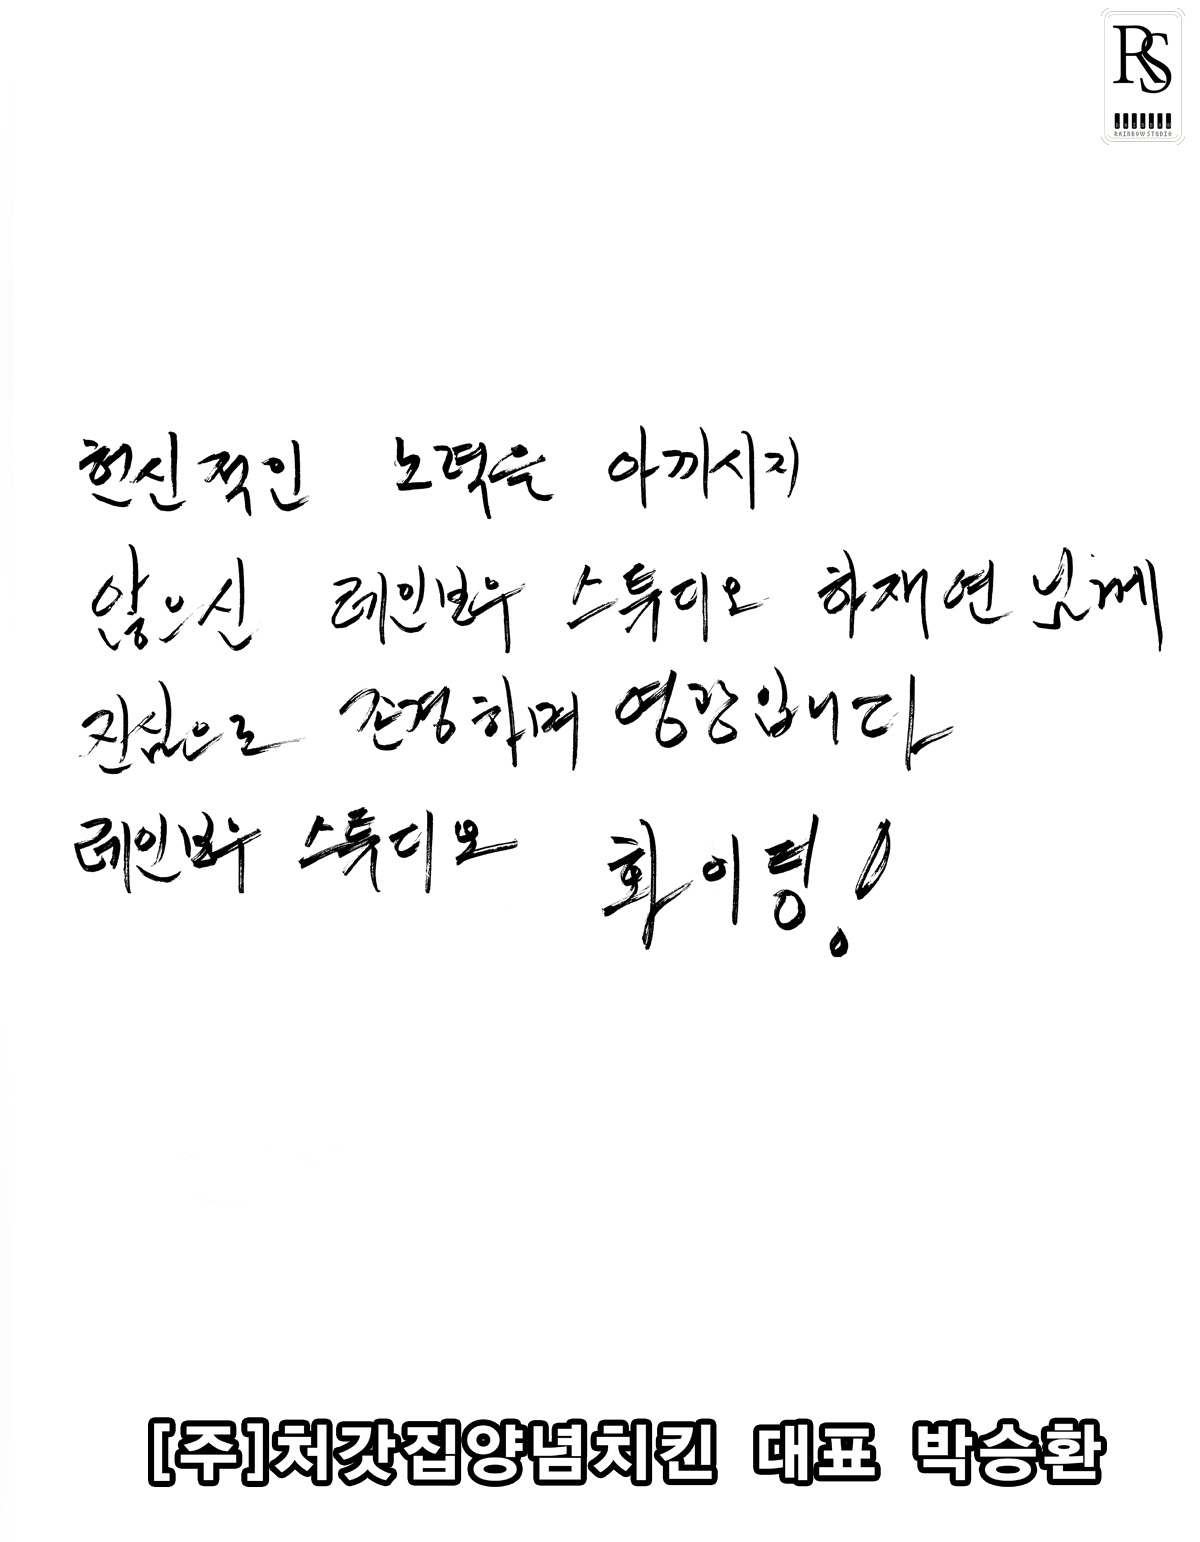 RS
RAINBOW STUDIO
헌신적인 노력을 아끼시지
않으신 레인보우 스튜디오 하재연 님께
진심으로 존경하며 영광입니다
레인보우 스튜디오 화이팅!
[주]처갓집양념치킨 대표 박승환